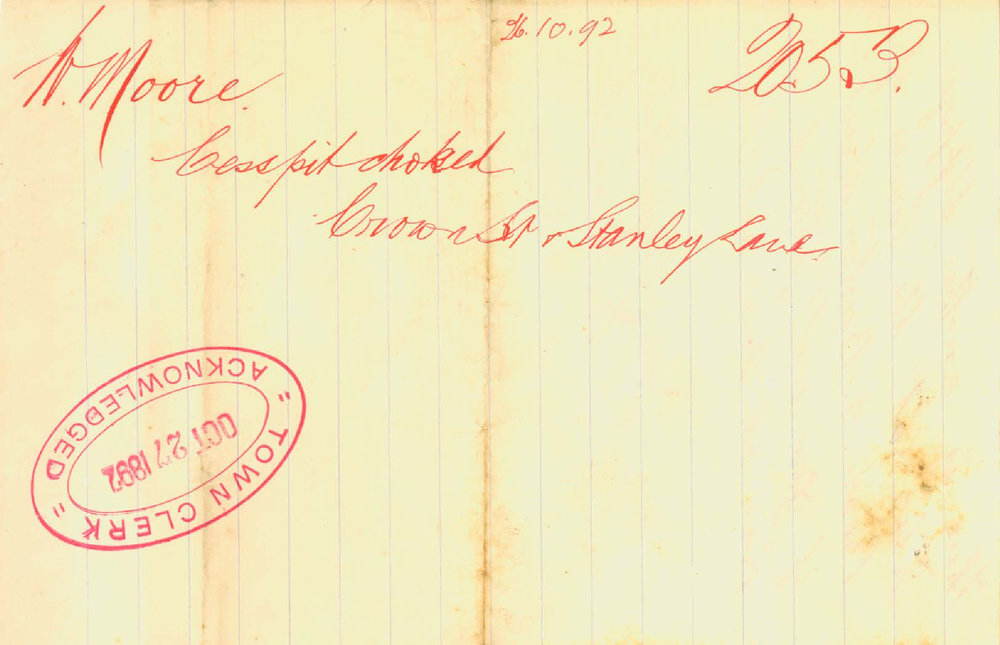 26.10.92
W. Moore.
2053.
Cesspit choked
Crown St & Stanley Lane.
"TOWN CLERK"
ACKNOWLEDGED
OCT 27 1892